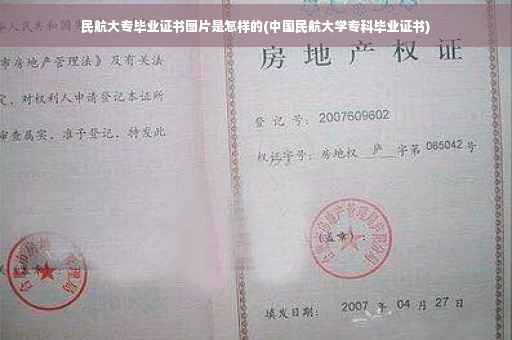 民航大专毕业证书图片是怎样的(中国民航大学专科毕业证书)
人民共和国
市房地产管理法》及有关法
定，对权利人申请登记本证所
审查属实，准予登记，特发此
房地产权证
登记号：2007609602
权证字号：房地权 庐 字第 065042 号
(盖章)：
填发日期： 2007 年 04 月 27 日